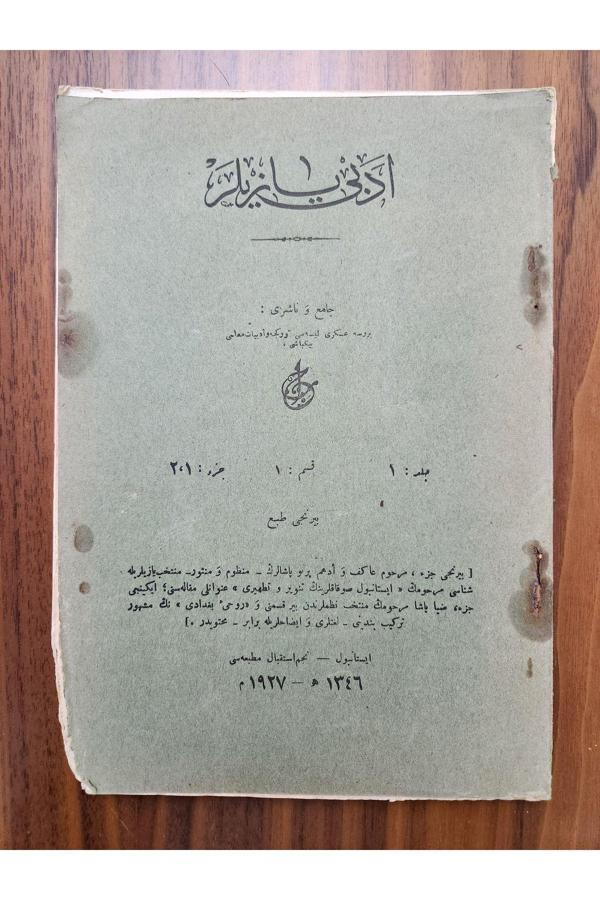 أدبی یازیلر
جامع و ناشری :
بروسه عسکری لیسه‌سی تورکجه و ادبیات معلمی
بیکباشی ،
جلد : ١ قسم : ١ جزء : ٢،١
بیرنجی طبع
[ بیرنجی جزء ، مرحوم عاکف و أدهم پرتو پاشالرڭ ـ منظوم و منثور ـ منتخب یازیلریله
شناسی مرحومڭ « ایستانبول سوقاقلرینڭ تنویر و تطهیری » عنوانلی مقاله‌سنی؛ ایکینجی
جزء، ضیا پاشا مرحومڭ منتخب نظملرندن بیر قسمنی و «روحیٔ بغدادی» نڭ مشهور
ترکیب بندینی ـ لغتلری و ایضاحلریله برابر ـ محتویدر ٠]
ایستانبول — نجم استقبال مطبعه‌سی
١٣٤٦ ﻫ — ١٩٢٧ م